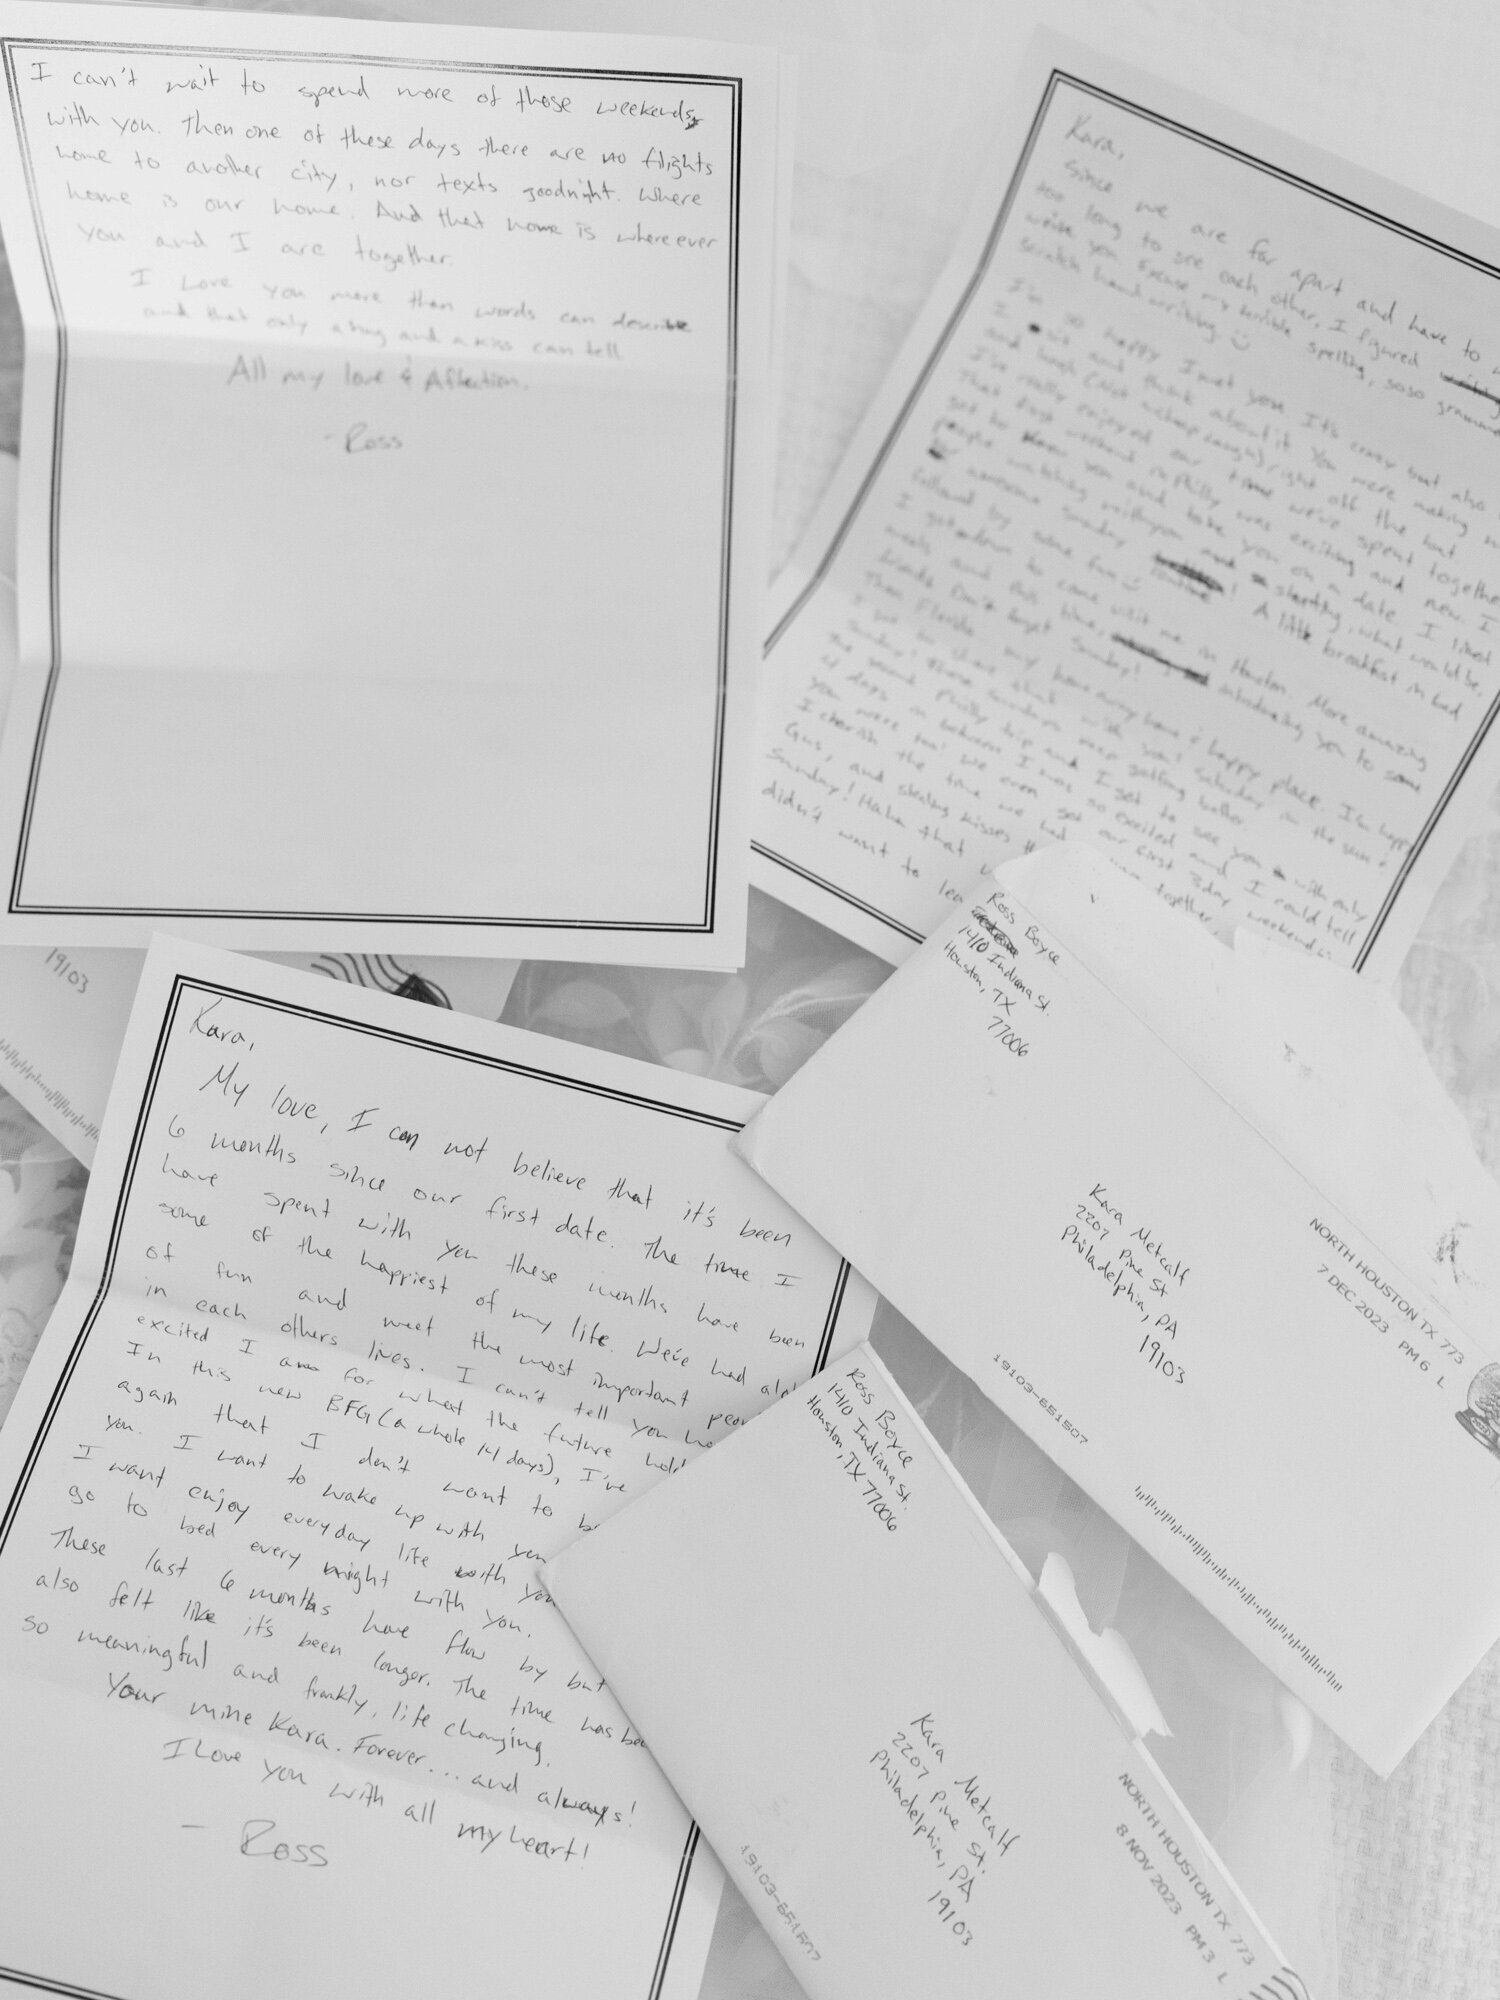 I can't wait to spend more of those weekends
with you. Then one of these days there are no flights
home to another city, nor texts goodnight. Where
home is our home. And that home is whereever
you and I are together.
I Love you more than words can describe
and that only a hug and a kiss can tell
All my love & Affection.
- Ross
Kara,
Since we are far apart and have to
too long to see each other, I figured
write you. Excuse my terrible spelling, soso grammer
scratch hand writing
I'm so happy I met you. It's crazy but also
I sit and think about it. You were making
and laugh right off the bat.
I've really enjoyed our time we've spent together
That first weekend in Philly was exciting and new. I
got to know you and take you on a date. I liked
people watching with you and starting, what would be,
awesome Sunday routine! A little breakfast in bed
followed by some fun
I got to come visit me in Houston. More amazing
meals and this time, introducing you to some
friends. Don't forget Sunday!
Then Florida my home away home & happy place. I'm happy
I got to share that with you! Saturday in the sun &
Sunday! These Sundays keep getting better.
The second Philly trip and I get to see you with only
4 days in between. I was so excited and I could tell
you were too! We even got our first 3 day weekend
I cherish the time we had together,
Gus, and stealing kisses
Sunday! Haha that
didn't want to
19103
Kara,
My love, I can not believe that it's been
6 months since our first date. The time I
have spent with you these months have been
some of the happiest of my life. We've had
of fun and meet the most important
in each others lives. I can't tell you
excited I am for what the future
In this new BFG (a whole 141 days), I've
again that I don't want to
you. I want to wake up with you
I want enjoy everyday life with you
go to bed every night with you.
These last 6 months have flow by but
also felt like it's been longer. The time has
so meaningful and frankly, life changing.
Your mine Kara. Forever... and always!
I Love you with all my heart!
- Ross
Ross Boyce
1410 Indiana St.
Houston, TX
77006
Kara Metcalf
2207 Pine St
Philadelphia, PA
19103
NORTH HOUSTON TX 773
7 DEC 2023 PM 6 L
19103-651507
Ross Boyce
1410 Indiana St.
Houston, TX 77006
Kara Metcalf
2207 Pine St.
Philadelphia, PA
19103
NORTH HOUSTON TX 773
8 NOV 2023 PM 3 L
19103-651507